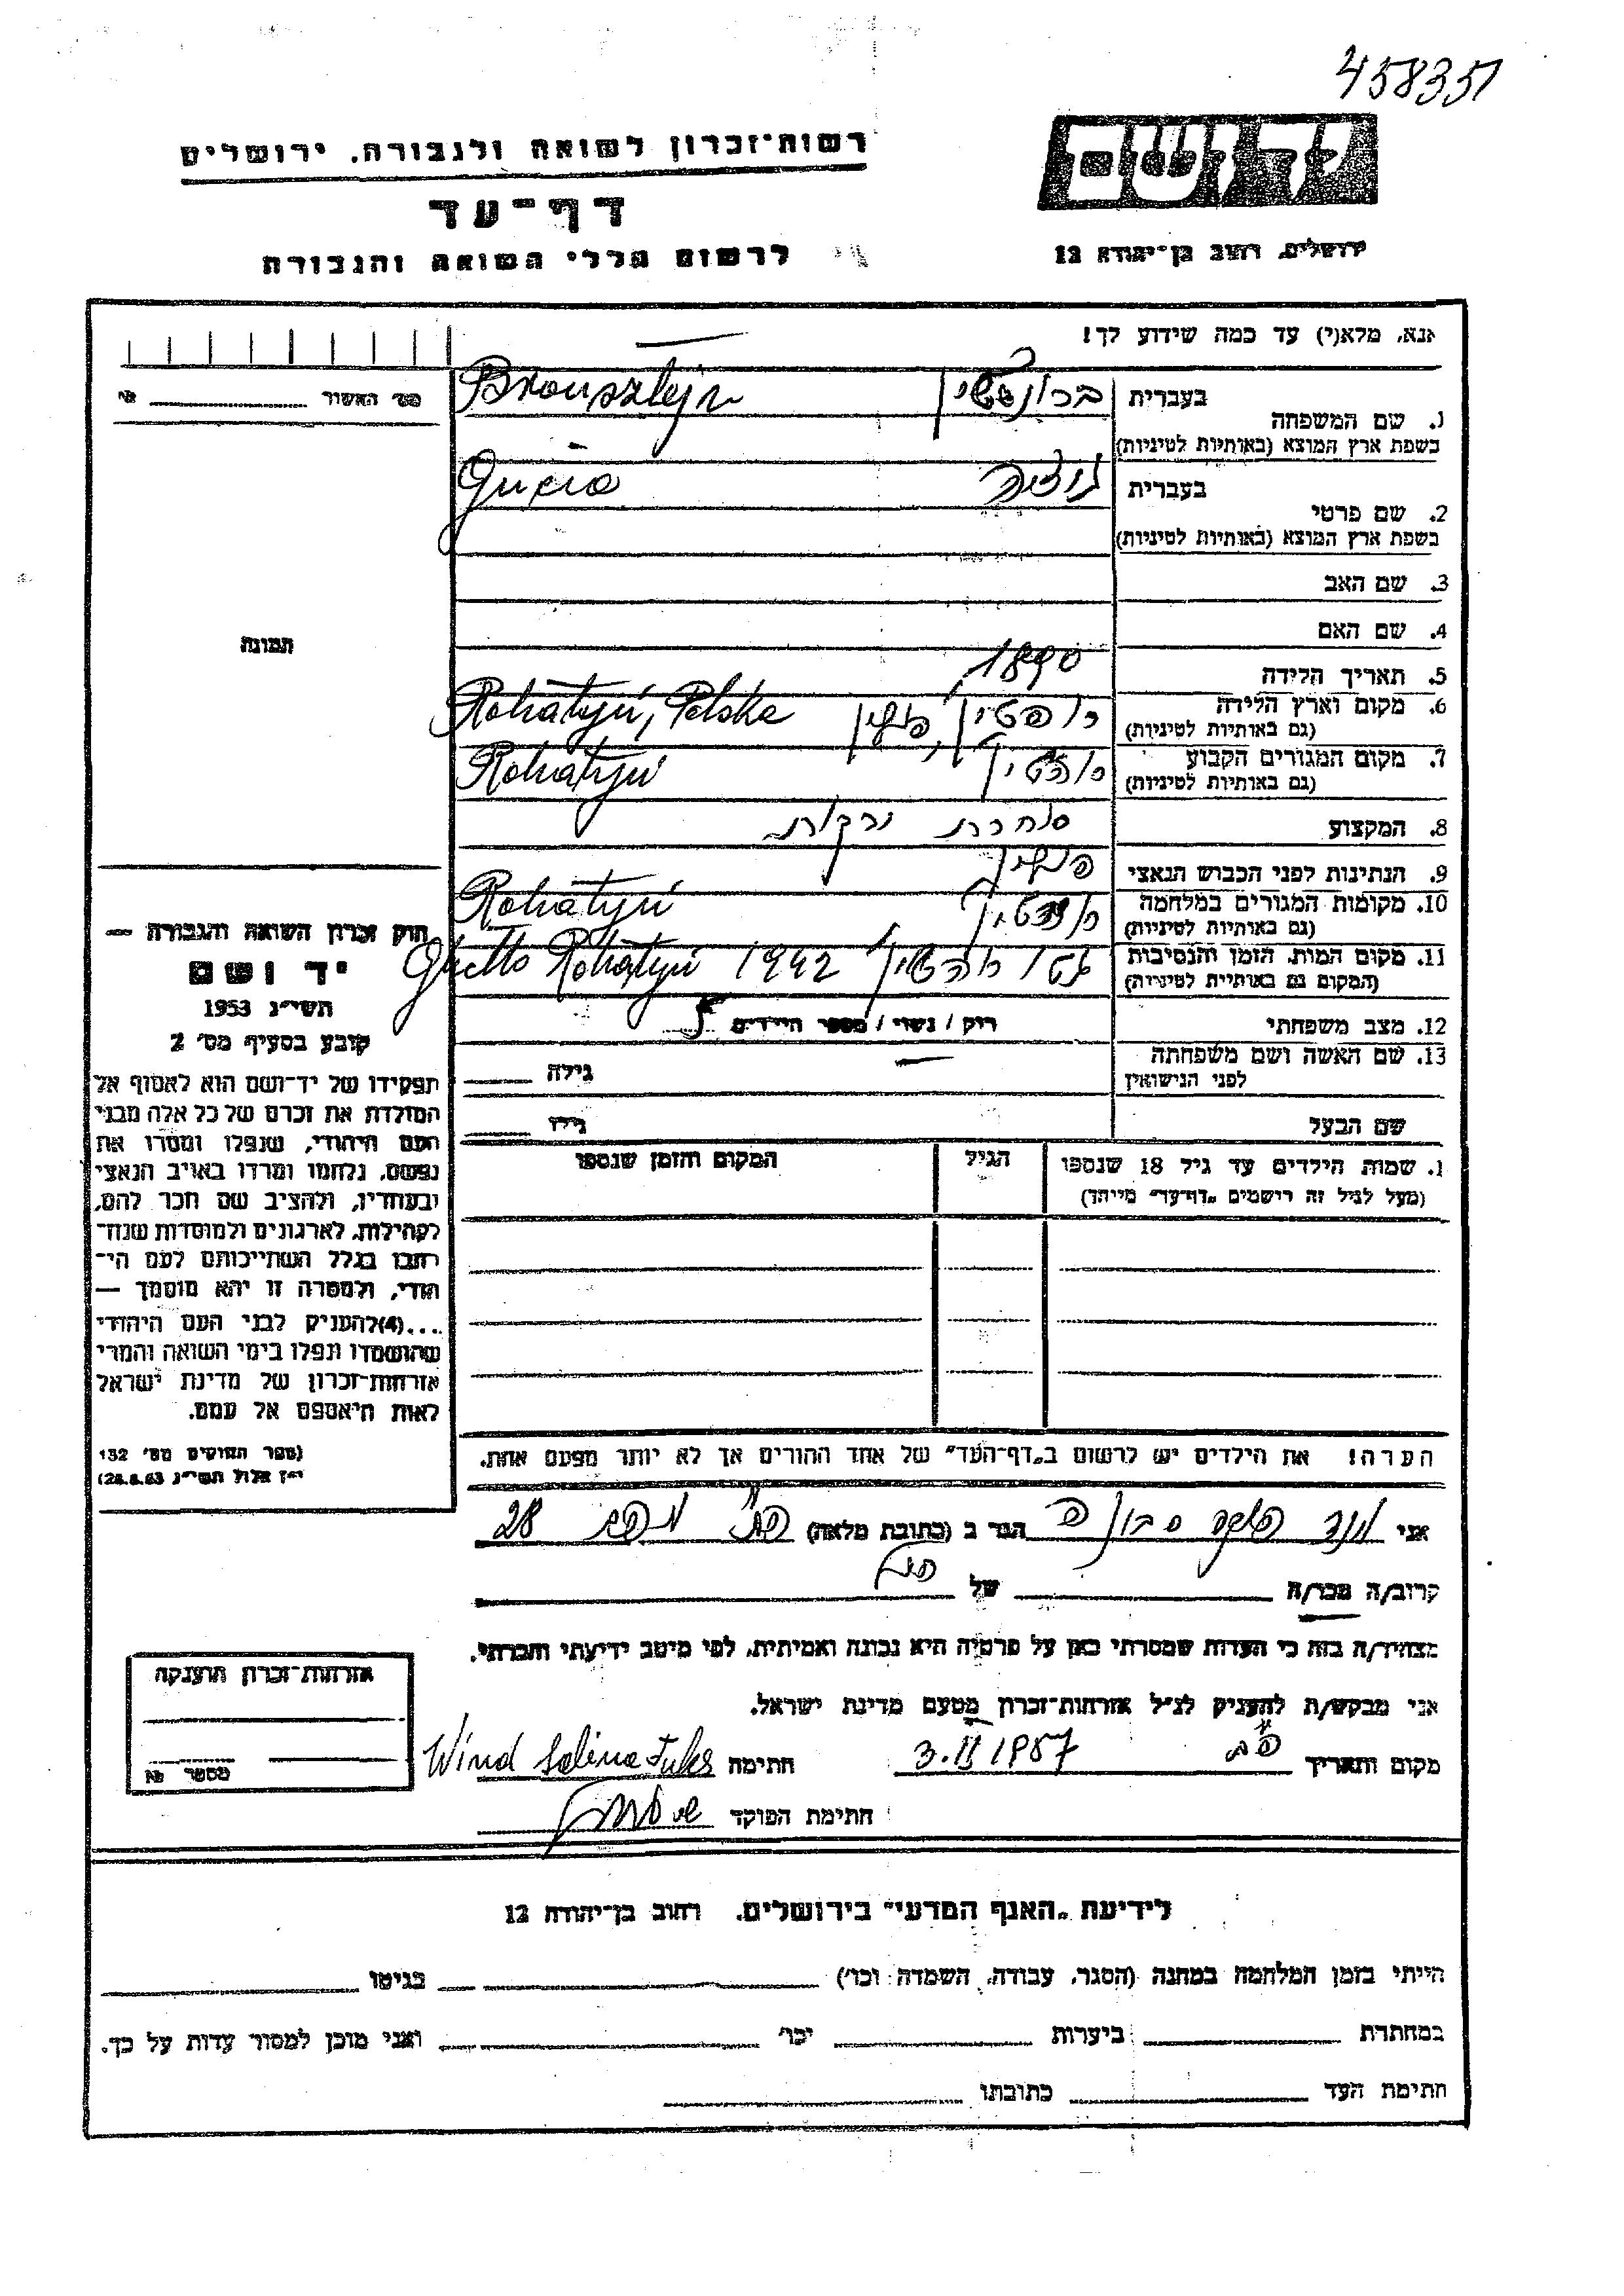 458351
יד ושם
רשות־זכרון לשואה ולגבורה, ירושלים
דף־עד
לרשום חללי השואה והגבורה
ירושלים, רחוב בן־יהודה 12
אנא, מלא(י) עד כמה שידוע לך!
מס׳ האשור №
1. שם המשפחה
בעברית ברונשטיין Bronsztejn
בשפת ארץ המוצא (באותיות לטיניות)
2. שם פרטי
בעברית גוציה Gucia
בשפת ארץ המוצא (באותיות לטיניות)
3. שם האב
4. שם האם
תמונה
5. תאריך הלידה 1890
6. מקום וארץ הלידה רוהטין, פולין Rohatyń, Polska
(גם באותיות לטיניות)
7. מקום המגורים הקבוע רוהטין Rohatyń
(גם באותיות לטיניות)
8. המקצוע סוחרת ירקות
9. הנתינות לפני הכבוש הנאצי פולין
10. מקומות המגורים במלחמה רוהטין Rohatyń
(גם באותיות לטיניות)
11. מקום המות, הזמן והנסיבות גטו רוהטין 1942 Ghetto Rohatyń
(המקום גם באותיות לטיניות)
12. מצב משפחתי רווק / נשוי / מספר הילדים 5
13. שם האשה ושם משפחתה גילה
לפני הנישואין
שם הבעל גילו
1. שמות הילדים עד גיל 18 שנספו הגיל המקום והזמן שנספו
(מעל לגיל זה רישמים „דף־עד” מיוחד)
חוק זכרון השואה והגבורה —
יד ושם
תשי״ג 1953
קובע בסעיף מס׳ 2
תפקידו של יד־ושם הוא לאסוף אל
המולדת את זכרם של כל אלה מבני
העם היהודי, שנפלו ומסרו את
נפשם, נלחמו ומרדו באויב הנאצי
ובעוזריו, ולהציב שם וזכר להם,
לקהילות, לארגונים ולמוסדות שנח־
רבו בגלל השתייכותם לעם הי־
הודי, ולמטרה זו יהא מוסמך —
...(4)להעניק לבני העם היהודי
שהושמדו ונפלו בימי השואה והמרי
אזרחות־זכרון של מדינת ישראל
לאות היאספם אל עמם.
(ספר החוקים מס׳ 132
י״ז אלול תשי״ג 28.8.53)
הערה! את הילדים יש לרשום ב„דף־העד” של אחד ההורים אך לא יותר מפעם אחת.
אני וינד סבינה הגר ב (כתובת מלאה) 28
קרוב/ה מכר/ה של
מצהיר/ה בזה כי העדות שמסרתי כאן על פרטיה היא נכונה ואמיתית, לפי מיטב ידיעתי והכרתי.
אני מבקש/ת להעניק לנ״ל אזרחות־זכרון מטעם מדינת ישראל.
אזרחות־זכרון הוענקה
מספר №
מקום ותאריך 3.II 1957 חתימה Wind Fuks
חתימת הפוקד
לידיעת „האגף המדעי” בירושלים, רחוב בן־יהודה 12
הייתי בזמן המלחמה במחנה (הסגר, עבודה, השמדה וכו׳) בגיטו
במחתרת ביערות וכו׳ ואני מוכן למסור עדות על כך.
חתימת העד כתובתו